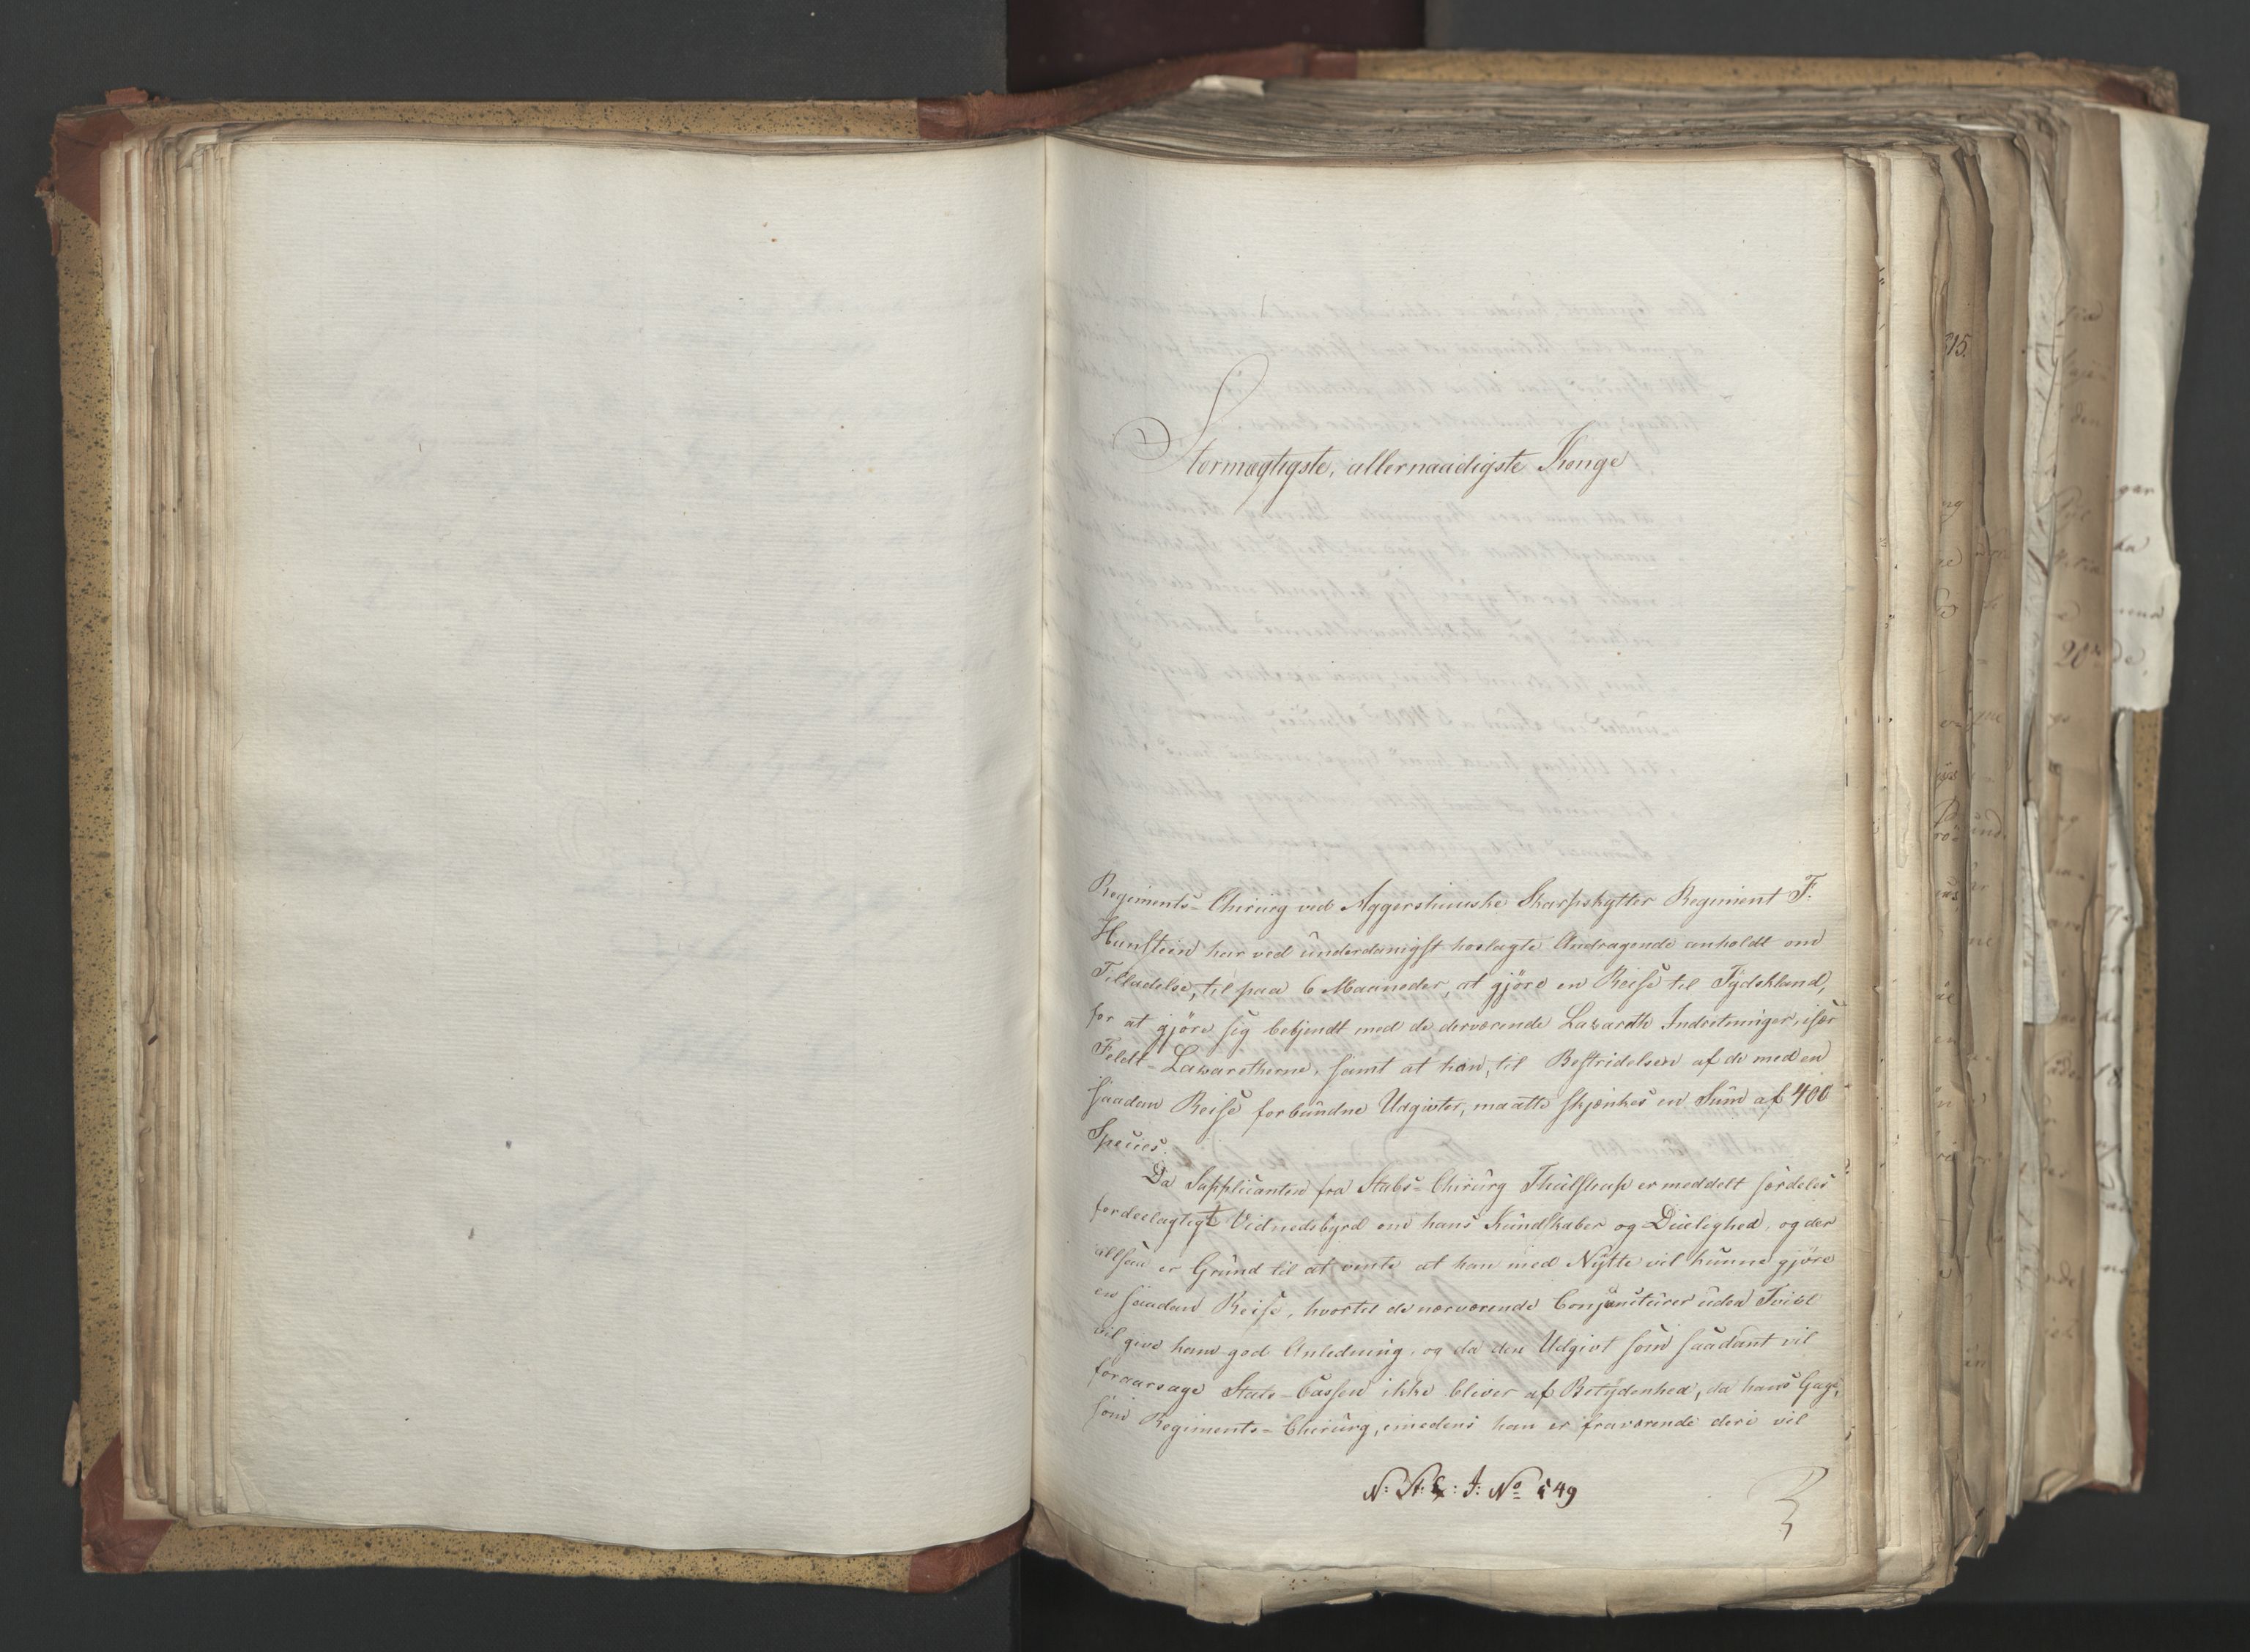 Stormægtigste, allernaadigste Konge
Regiments-Chirurg ved Aggershuuske Skarpskytter Regiment F.
Hunstein har ved underdanigst hoslagte Andragende anholdt om
Tilladelse, til paa 6 Maaneder, at gjöre en Reise til Tydskland,
for at gjöre sig bekjendt med de derværende Lazareth Indretninger, især
Feldt-Lazaretherne, samt at han, til Bestridelsen af de med en
saadan Reise forbundne Udgivter, maatte skjænkes en Sum af 400
Species.
Da Supplicanten fra Stabs-Chirurg Thulstrup er meddelt særdeles
fordeelagtigt Vidnedsbyrd om hans Kundskaber og Duelighed, og der
altsaa er Grund til at vente at han med Nytte vil kunne gjöre
en saadan Reise, hvortil de nærværende Conjuncturer uden Tvivl
vil give ham god Anledning, og da den Udgivt som saadant vil
foraarsage Stats-Cassen ikke bliver af Betydenhed, da hans Gage,
som Regiments-Chirurg, imedens han er fraværende deri vil
N: St: S: J: No 549
315.